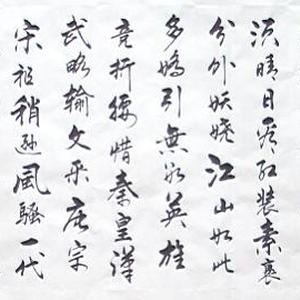 须晴日看红装素裹
分外妖娆江山如此
多嬌引無数英雄
竞折腰惜秦皇漢
武略输文采唐宗
宋祖稍逊風騷一代